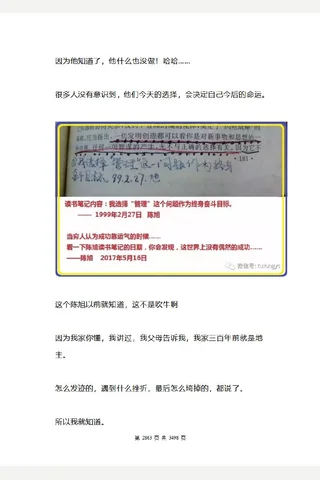 因为他知道了，他什么也没做！哈哈……
很多人没有意识到，他们今天的选择，会决定自己今后的命运。
·181·
我选择"管理"这个问题作为终身
奋斗目标。99.2.27.旭
读书笔记内容：我选择“管理”这个问题作为终身奋斗目标。
—— 1999年2月27日 陈旭
当穷人认为成功靠运气的时候……
看一下陈旭读书笔记的日期，你会发现，这世界上没有偶然的成功……
——陈旭 2017年5月16日
这个陈旭以前就知道，这不是吹牛啊
因为我家你懂，我讲过，我父母告诉我，我家三百年前就是地
主。
怎么发迹的，遇到什么挫折，最后怎么垮掉的，都说了。
所以我就知道。